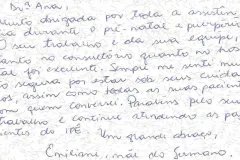 Drª Ana,
muito obrigada por toda a assistên
cia durante o pré-natal e puerpério
O seu trabalho e da sua equipe,
tanto no consultório quanto no hos
tal foi excelente. Sempre me senti mui
segura por estar sob seus cuidad
os, assim como todas as suas pacien
com quem conversei. Parabéns pelo seu
trabalho e continue atendendo as pa
cientes do IPE
Um grande abraço,
Emiliane, mãe do Germano.